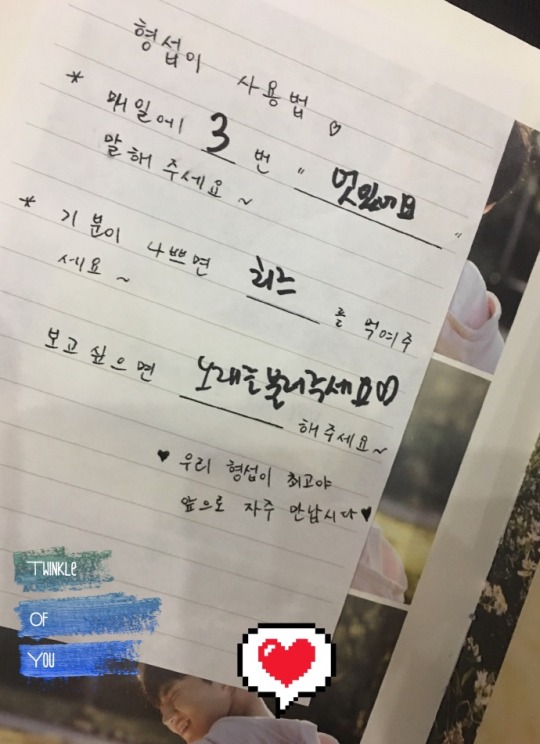 형섭이 사용법 ♡
* 매일에 3 번 " 멋있어요 "
말해 주세요 ~
* 기분이 나쁘면 를 먹여주
세요 ~
보고 싶으면 노래를불러주세요
해주세요~
♥ 우리 형섭이 최고야
앞으로 자주 만납시다 ♥
TWINKLE
OF
YOU